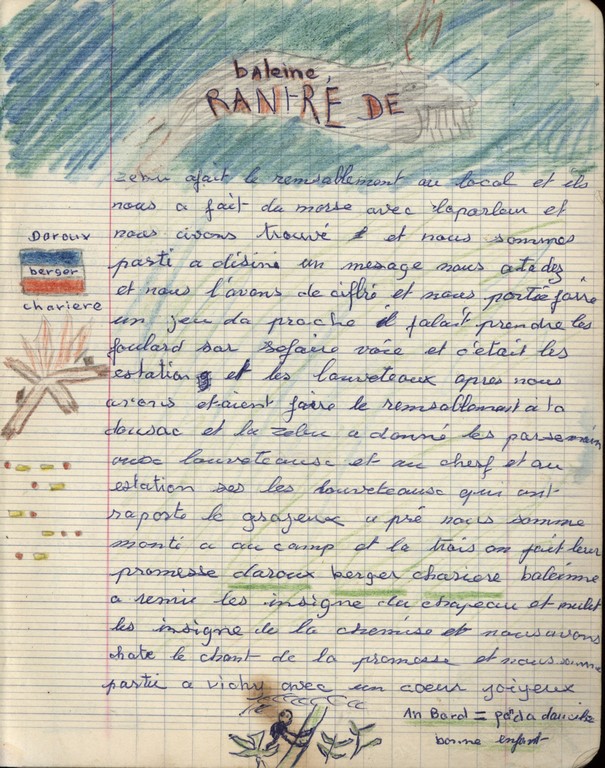 baleine
RANTRÉ DE
zebu afait le remsablemont au local et ils
nous a fait du morse avec laparleur et
nous avons trouvé et nous sommes
parti a disini un mesage nous atedez
et nous l'avons de ciffré et nous faire
un jeu da proche il falait prendre les
foulard sar sefaire voire et c'était les
estation et les louveteaux apres nous
avons etaient faire le remsablemant à la
dousac et la zebu a donné les
avec louveteause et au cherf et au
estation ses les louveteause qui ont
raporte le a pré nous somme
monté a au camp et la trois on fait leur
promesse daroux berger chariere baleinne
a remie les insigne du chapeau et
les insigne de la chemise et nous avons
chate le chant de la promesse et nous somme
partie a vichy avec un coeur joiyeux
Daroux
berger
chariere
An Baral =
bonne enfant